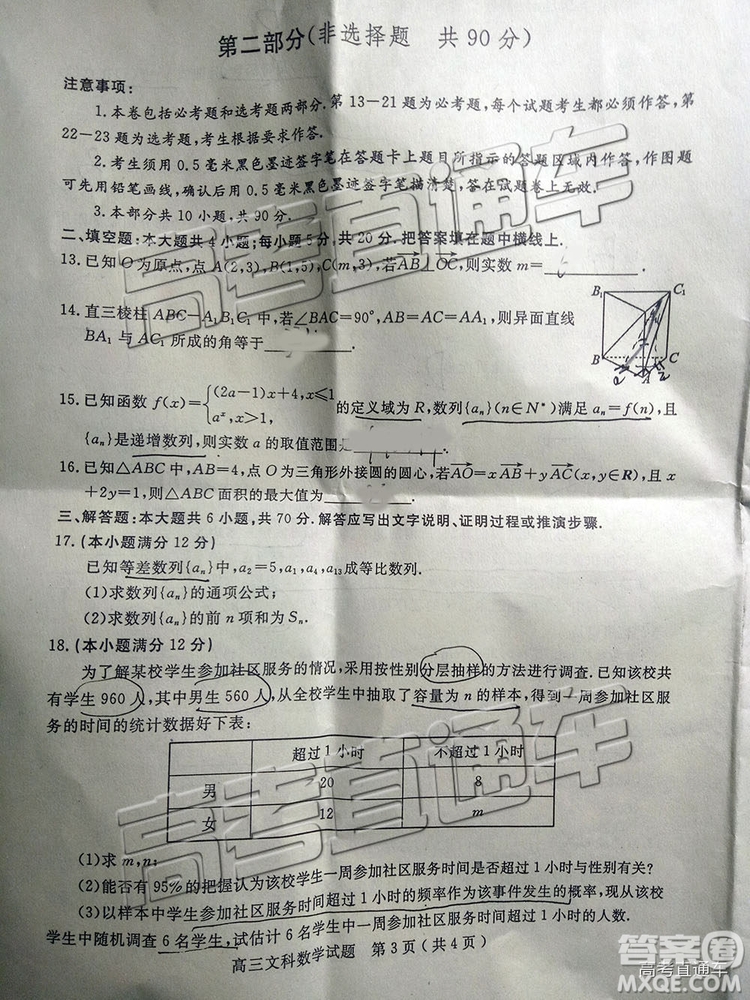 第二部分(非选择题 共90分)
注意事项:
1.本卷包括必考题和选考题两部分.第13-21题为必考题,每个试题考生都必须作答,第
22-23题为选考题,考生根据要求作答.
2.考生须用0.5毫米黑色墨迹签字笔在答题卡上题目所指示的答题区域内作答,作图题
可先用铅笔画线,确认后用0.5毫米黑色墨迹签字笔描清楚,在试题卷上无效.
3.本部分共10小题,共90分.
二、填空题:本大题共4小题;每小题5分,共20分.把答案填在题中横线上.
13.已知O为原点,点A(2,3),B(1,5),C(m,3),若AB⊥OC,则实数m=
14.直三棱柱ABC-A₁B₁C₁中,若∠BAC=90°,AB=AC=AA₁,则异面直线
BA₁与AC₁所成的角等于
B₁ C₁
B C
A
15.已知函数f(x)={(2a-1)x+4,x≤1
aˣ,x>1,
的定义域为R,数列{aₙ}(n∈N*)满足aₙ=f(n),且
{aₙ}是递增数列,则实数a的取值范围是
16.已知△ABC中,AB=4,点O为三角形外接圆的圆心,若AO=xAB+yAC(x,y∈R),且x
+2y=1,则△ABC面积的最大值为
三、解答题:本大题共6小题,共70分.解答应写出文字说明、证明过程或推演步骤.
17.(本小题满分12分)
已知等差数列{aₙ}中,a₂=5,a₁,a₄,a₁₃成等比数列.
(1)求数列{aₙ}的通项公式;
(2)求数列{aₙ}的前n项和为Sₙ.
18.(本小题满分12分)
为了解某校学生参加社区服务的情况,采用按性别分层抽样的方法进行调查.已知该校共
有学生960人,其中男生560人,从全校学生中抽取了容量为n的样本,得到一周参加社区服
务的时间的统计数据好下表:
超过1小时 不超过1小时
男 20 8
女 12 m
(1)求m,n;
(2)能否有95%的把握认为该校学生一周参加社区服务时间是否超过1小时与性别有关?
(3)以样本中学生参加社区服务时间超过1小时的频率作为该事件发生的概率,现从该校
学生中随机调查6名学生,试估计6名学生中一周参加社区服务时间超过1小时的人数.
高三文科数学试题 第3页(共4页)
高考直通车
高考直通车
高考直通车
答案卷
高考直通车
MXQE.COM